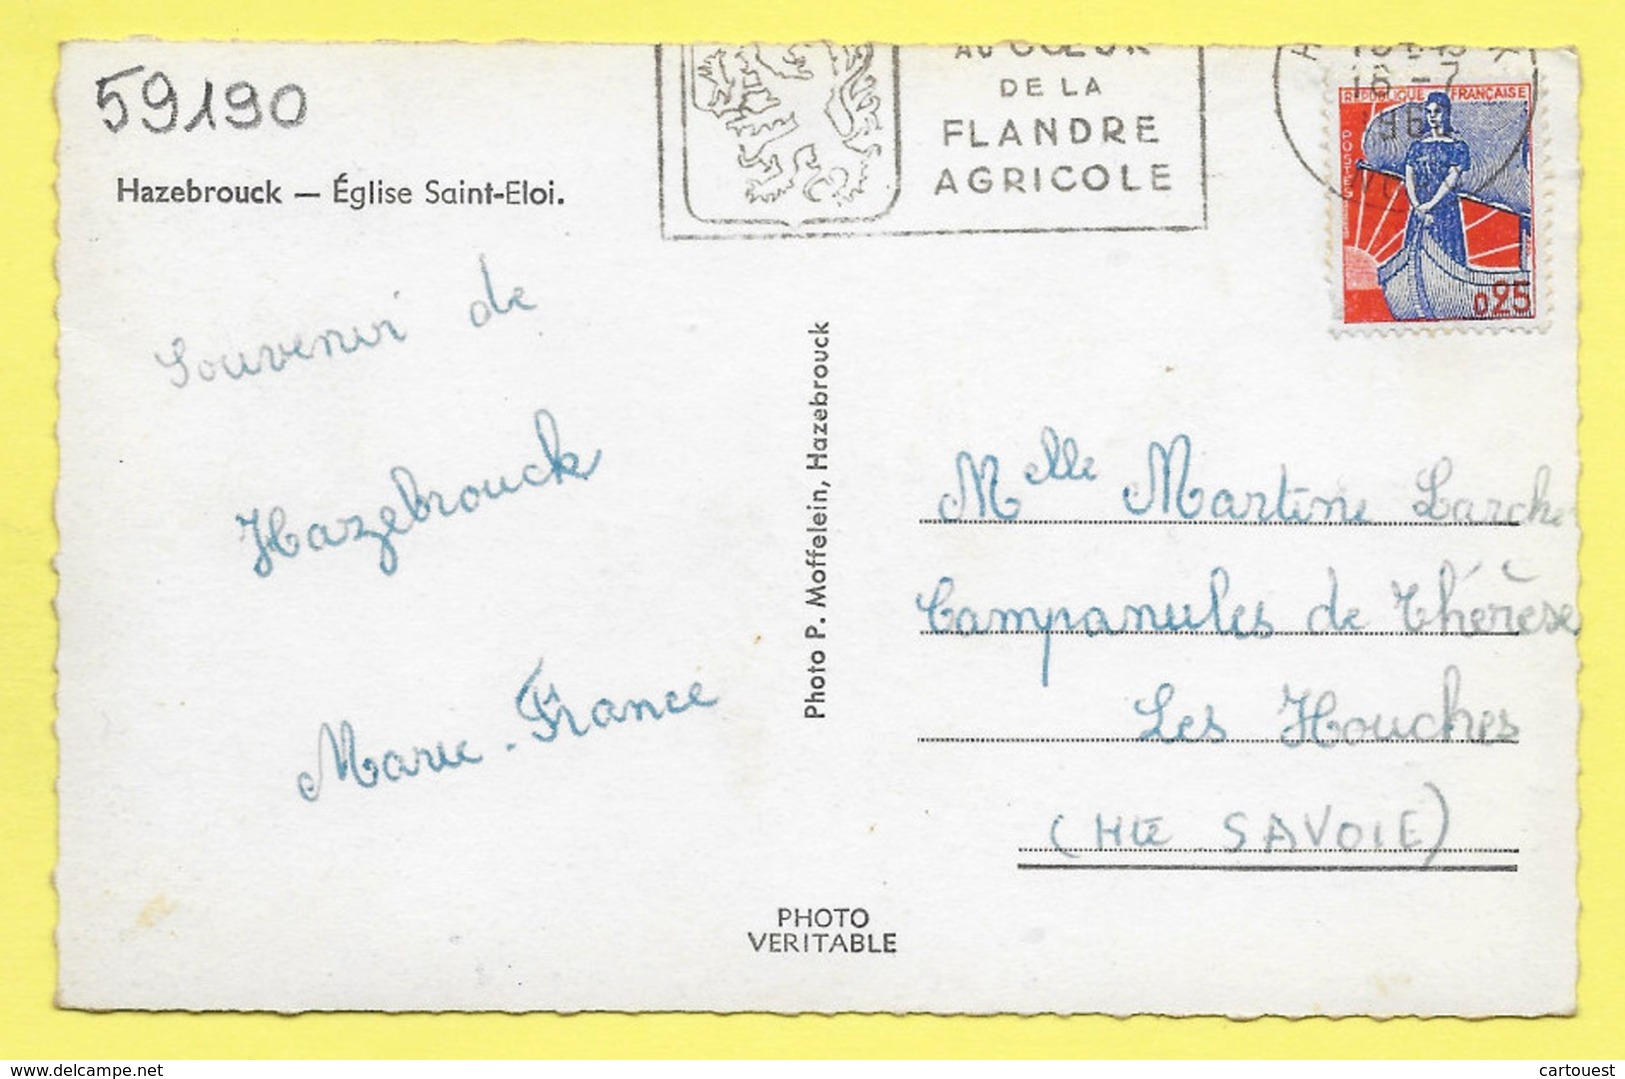 59190
Hazebrouck — Église Saint-Eloi.
AU CŒUR
DE LA
FLANDRE
AGRICOLE
16-7
RÉPUBLIQUE FRANÇAISE
POSTES
0,25
Souvenir de
Hazebrouck
Marie-France
Photo P. Moffelein, Hazebrouck
Melle Martine Larche
Campanules de Thérèse
Les Houches
(Hte SAVOIE)
PHOTO
VERITABLE
www.delcampe.net
cartouest